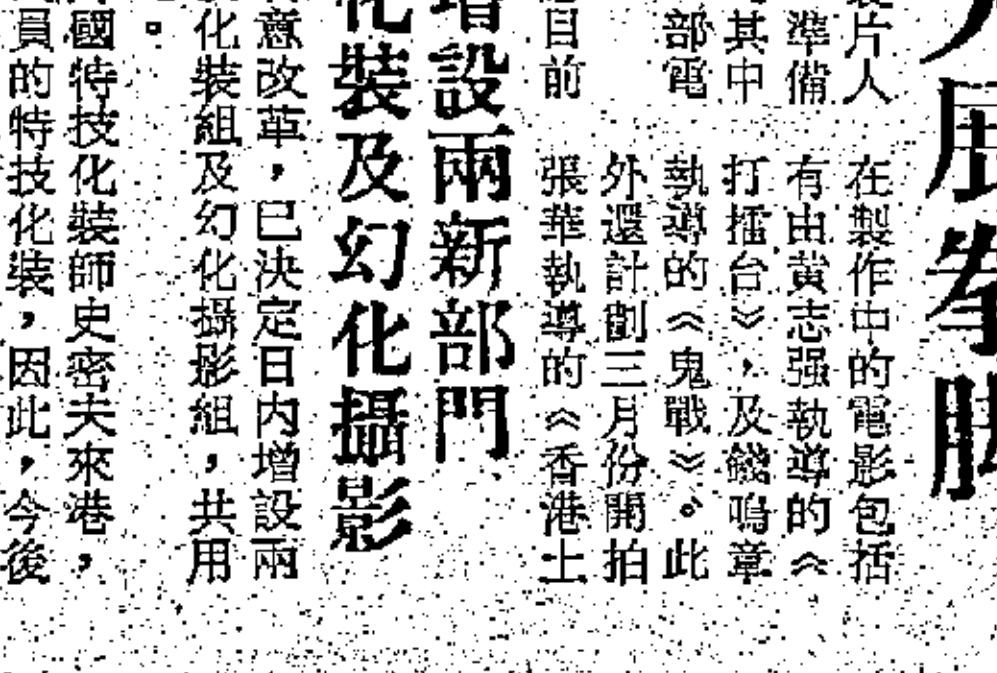 展拳脚
製片人
準備
其中
部電
目前
在製作中的電影包括
有由黄志强執導的《
打擂台》，及錢鳴章
執導的《鬼戰》。此
外還計劃三月份開拍
張華執導的《香港土
增設兩新部門
化裝及幻化攝影
意改革，已決定日内增設兩
化裝組及幻化攝影組，共用
。
國特技化裝師史密夫來港，
員的特技化裝，因此，今後